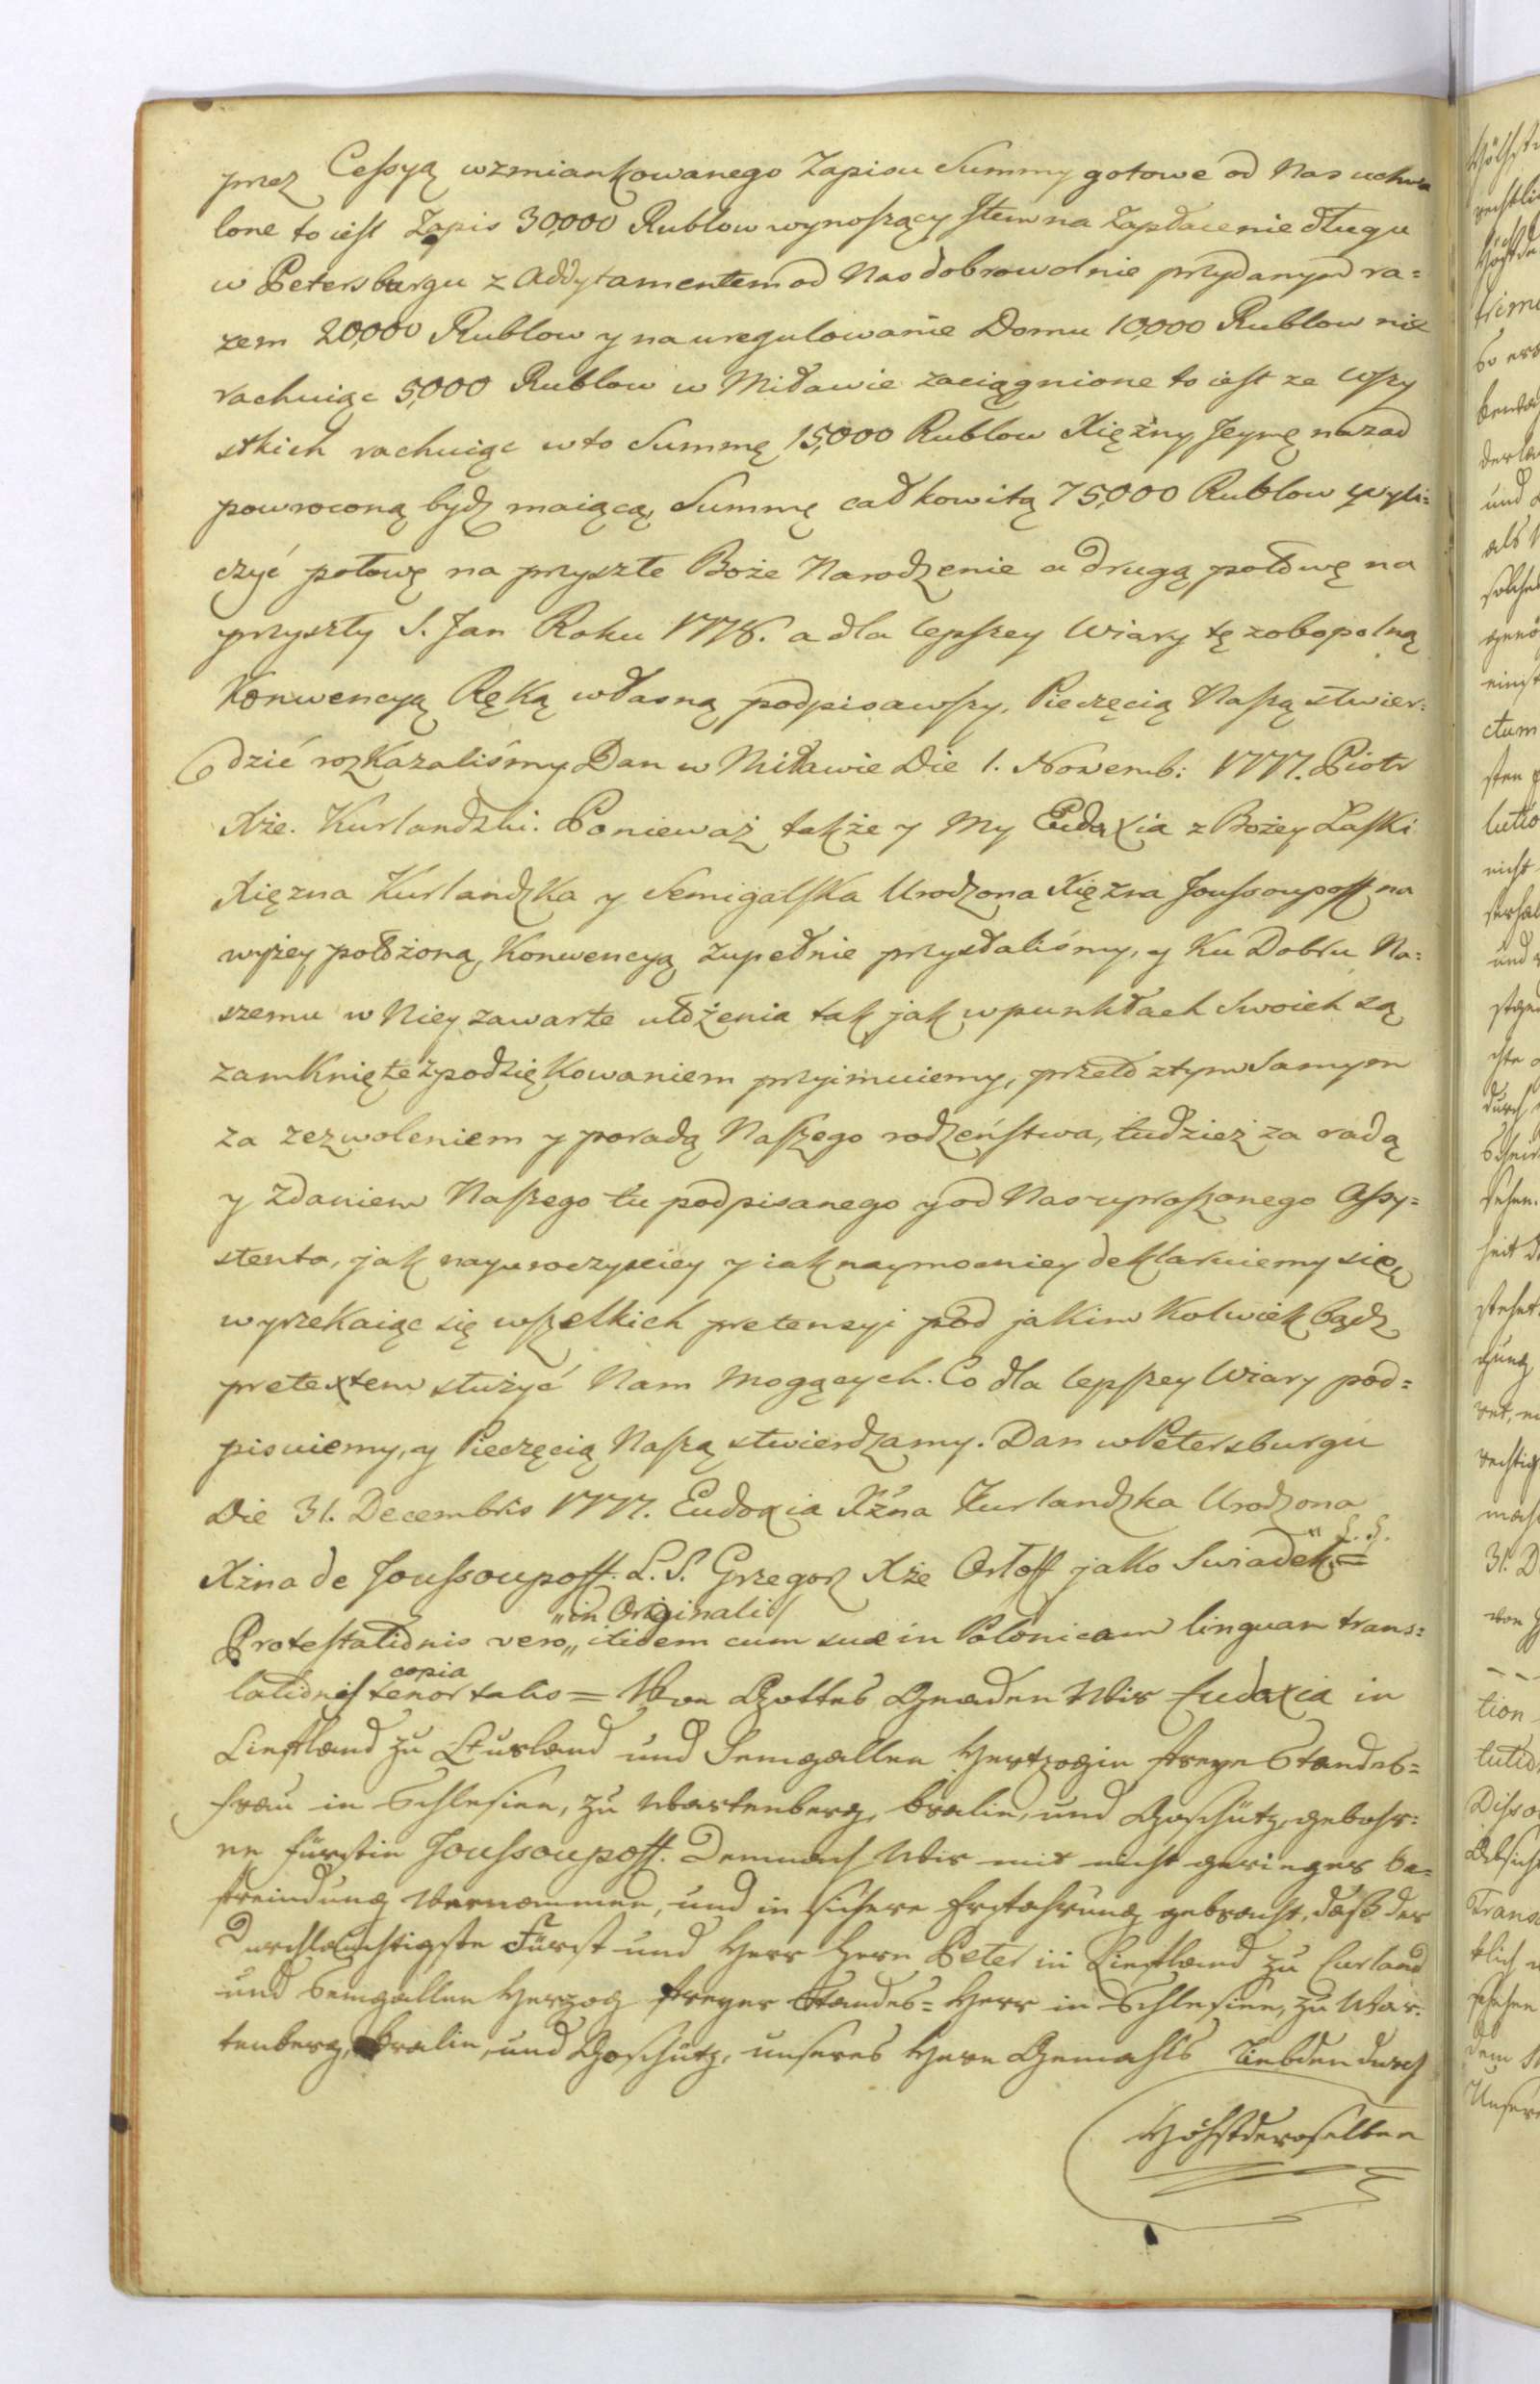 przez Cessyą wzmiankowanego Zapisu Summy gotowe od Nas uchwa
lone to iest Zapis 30,000 Rublow wynoszący Item na Zapłacenie długu
w Petersburgu z Addytamentem od Nas dobrowolnie przydanym ra=
zem 20,000 Rublow y na uregulowanie Domu 10,000 Rublow nie
rachuiąc 5,000 Rublow w Mitawie zaciągnione to iest ze wszy
stkich rachuiąc w to Summę 15,000 Rublow Xiężny Jeymę nazad
powroconą bydź maiącą, Summę całkowitą 75,000 Rublow wyli=
czyć połowę na przyszłe Boże Narodzenie a drugą połowę na
przyszły S. Jan Roku 1778. a dla lepszey Wiary tę zobopolną
Konwencyą Ręką własną podpisawszy, Pieczęcią Naszą stwier=
dzić rozkazaliśmy Dan w Mitawie Die 1. Novemb: 1777. Piotr
Xże. Kurlandzki. Ponieważ także y My Eudoxia z Bożey Łaski
Xięzna Kurlandzka y Semigalska Urodzona Xięzna Joussoupoff na
wyżey położoną Konwencyą zupełnie przystaliśmy, y Ku Dobru Na=
szemu w Niey zawarte ułożenia tak jak w punktach Swoich są
zamknięte z podziękowaniem przyimuiemy, przeto z tym Samym
za zezwoleniem y poradą Naszego rodzeństwa, tudzież za radą
y zdaniem Naszego tu podpisanego y od Nas uproszonego Assy=
stenta, jak nayuroczyściey y iak naymocniey deklaruiemy się
wyrzekaiąc się wszelkich pretensyi pod jakim Kolwiek bądź
pretextem służyć Nam mogących. Co dla lepszey Wiary pod=
pisuiemy, y Pieczęcią Naszą stwierdzamy. Dan w Petersburgu
Die 31. Decembris 1777. Eudoxia Xżna Kurlandzka Urodzona
Xżna de Joussoupoff. L. S. Grzegorz Xże Orłoff jako Swiadek "L. S. =
Protestationis vero "in Originali itidem cum sua in Polonicam linguam trans=
lationis copia tenor talis = Von Gottes Gnaden Wir Eudoxia in
Liefland zu Curland und Semgallen Hertzogin freye Standes=
frau in Schlesien, zu Wartenberg, Bralin, und Goschütz, gebohr=
ne Fürstin Joussoupoff. Demnach Wir mit nicht geringer Be=
freindung Vernommen, und in sichere Erfahrung gebracht, daß der
Durchlauchtigste Fürst und Herr Herr Peter in Liefland zu Curland
und Semgallen Herzog freyer Standes= Herr in Schlesien, zu War=
tenberg, Bralin, und Goschütz, unseres Herrn Gemahls Liebden durch
Höchstderoselben